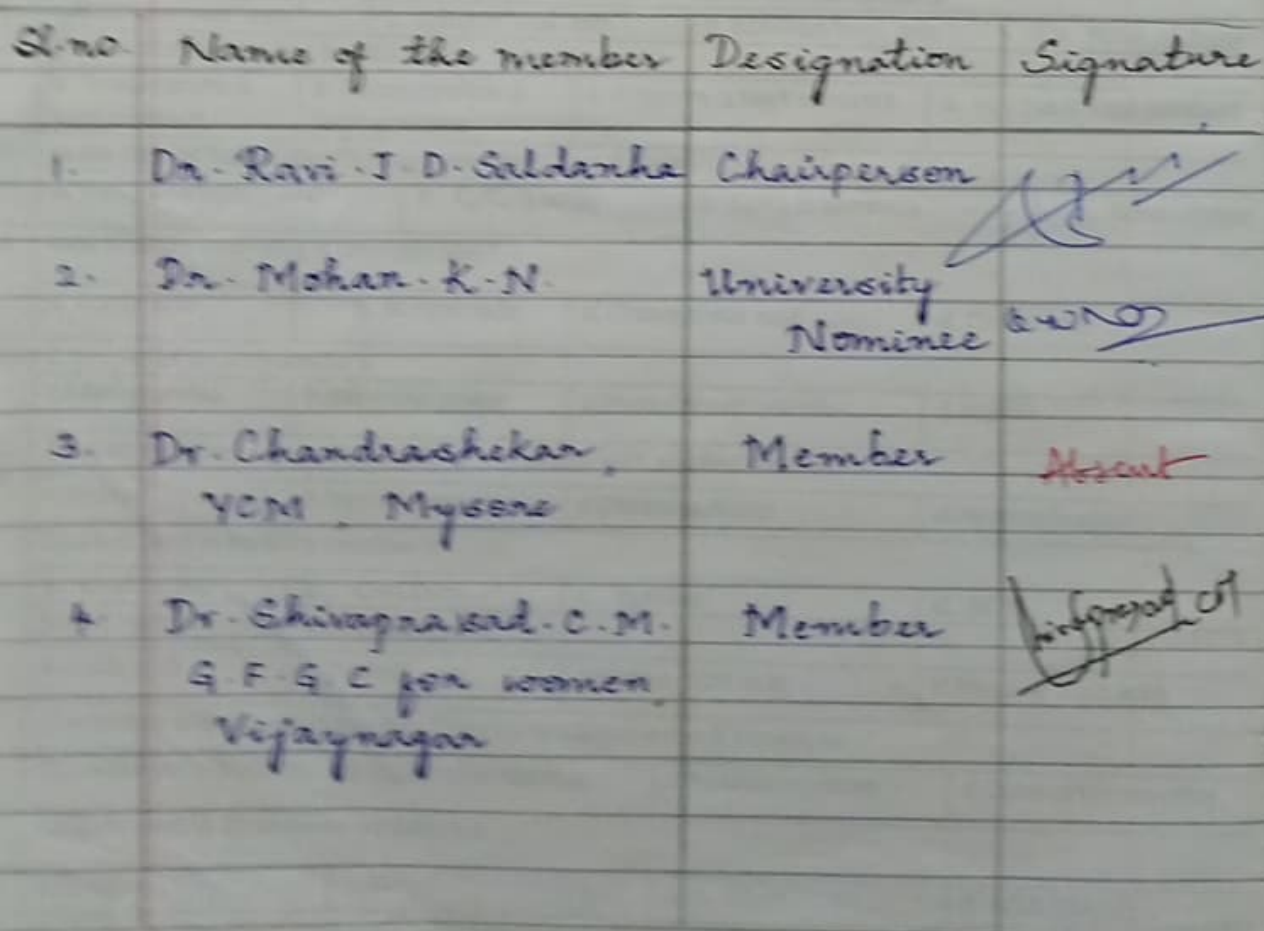 Sl.no Name of the member Designation Signature
1. Dr. Ravi. J. D. Saldanha Chairperson
2. Dr. Mohan. K. N. University
Nominee
3. Dr. Chandrashekar, Member Absent
YCM, Mysore
4. Dr. Shivaprasad. C. M. Member
G F G C for women,
Vijaynagar